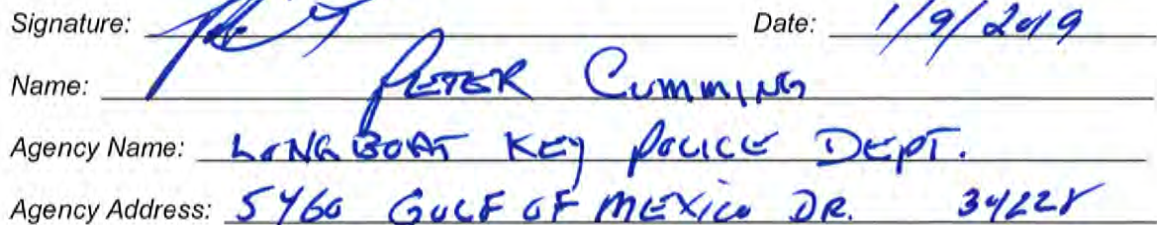 Signature: Date: 1/9/2019
Name: PETER CUMMING
Agency Name: LONGBOAT KEY POLICE DEPT.
Agency Address: 5460 GULF OF MEXICO DR. 34228